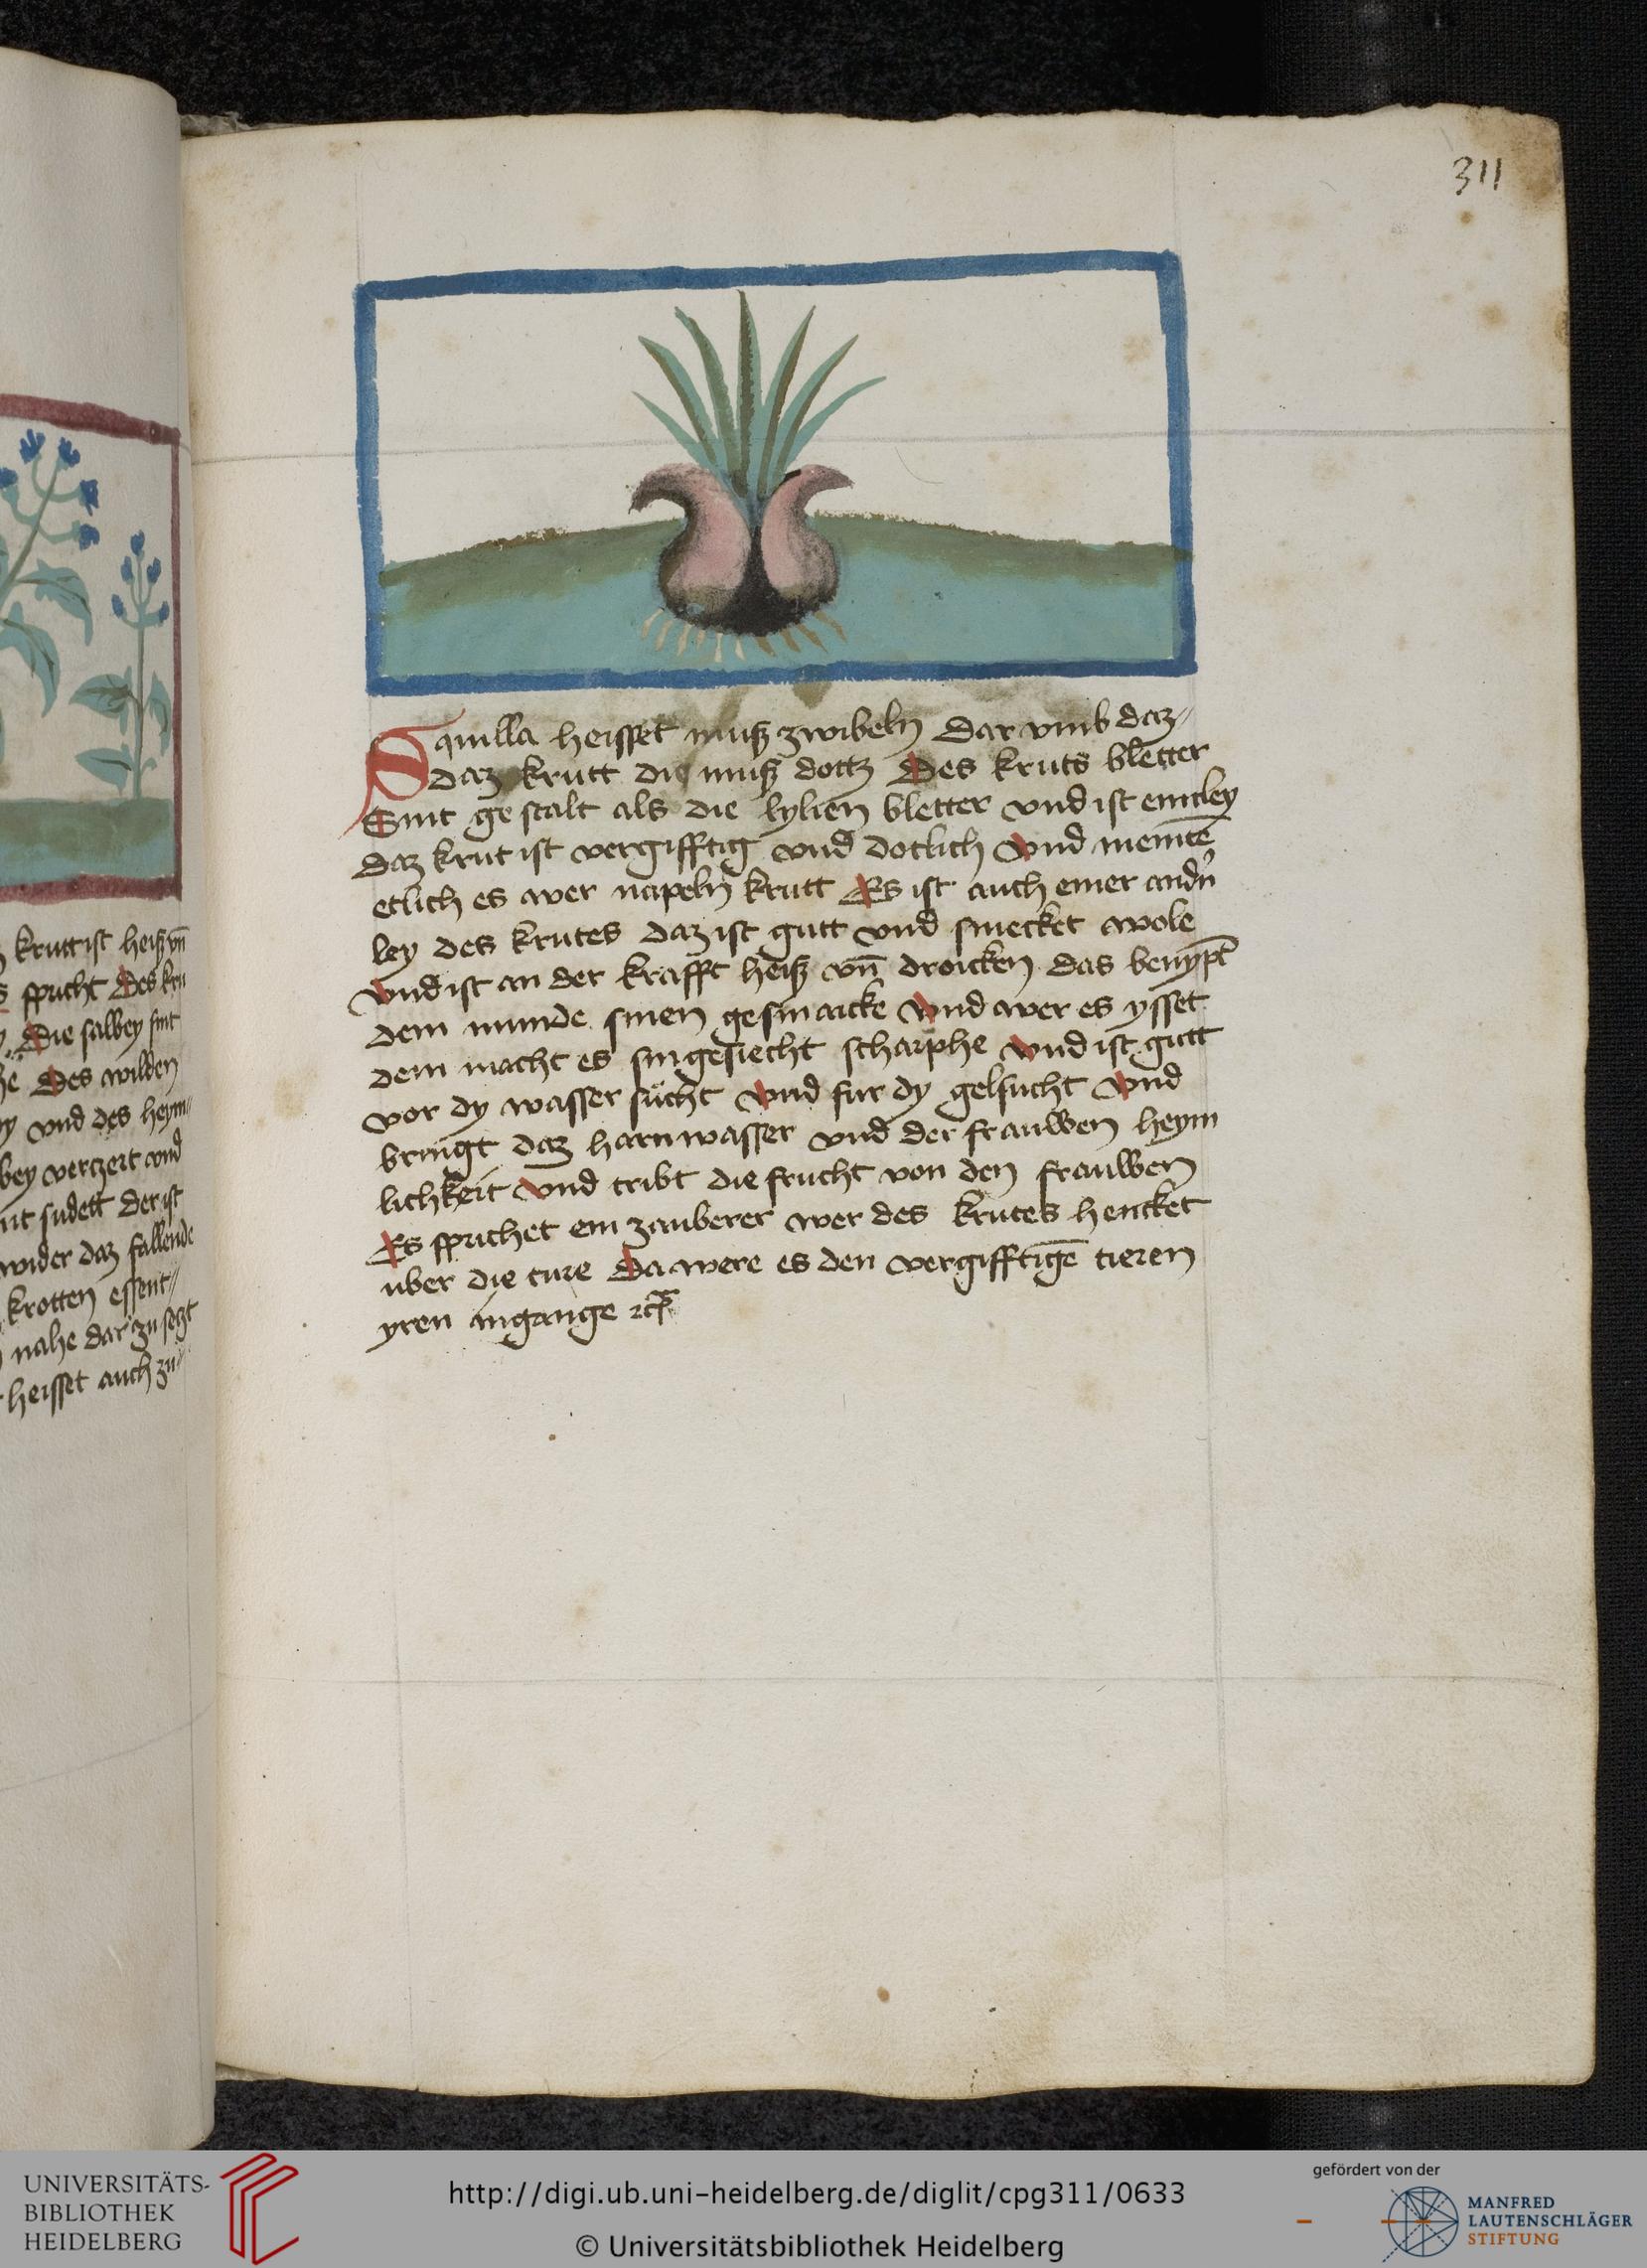 311
Squilla heisset muß zwibeln Dar vmb daz
daz krutt die muß dottz Des kruts bletter
Sint gestalt als die lylien bletter vnd ist einerley
daz krut ist vergifftig vnd dotlich Vnd meintē
etlich es wer napeln krutt Es ist auch einer andn̄
ley des krutes daz ist gutt vnd smecket wole
Vnd ist an der krafft heiß vn̄ droicken das benȳpt
dem munde sinen gesmacke Vnd wer es ysset
dem macht es sin gesiecht scharphe Vnd ist gutt
vor dy wasser sucht Vnd fur dy gelsucht Vnd
bringt daz harn wasser vnd der frauwen heym
lichkeit Vnd tribt die frucht von den frauwen
Es sprichet ein zauberer wer des krutes hencket
uber die ture Da were es den vergifftigē tieren
yren ingange
krutt ist heiß vn̄
spricht Des kru
Die salbey sint
Des wilden
vnd des heym
bey verczert vnd
sudett der ist
wider daz fallende
krotten essent
nahe dar zu setzt
heisset auch zu
UNIVERSITÄTS-
BIBLIOTHEK
HEIDELBERG
http://digi.ub.uni-heidelberg.de/diglit/cpg311/0633
© Universitätsbibliothek Heidelberg
gefördert von der
MANFRED
LAUTENSCHLÄGER
STIFTUNG